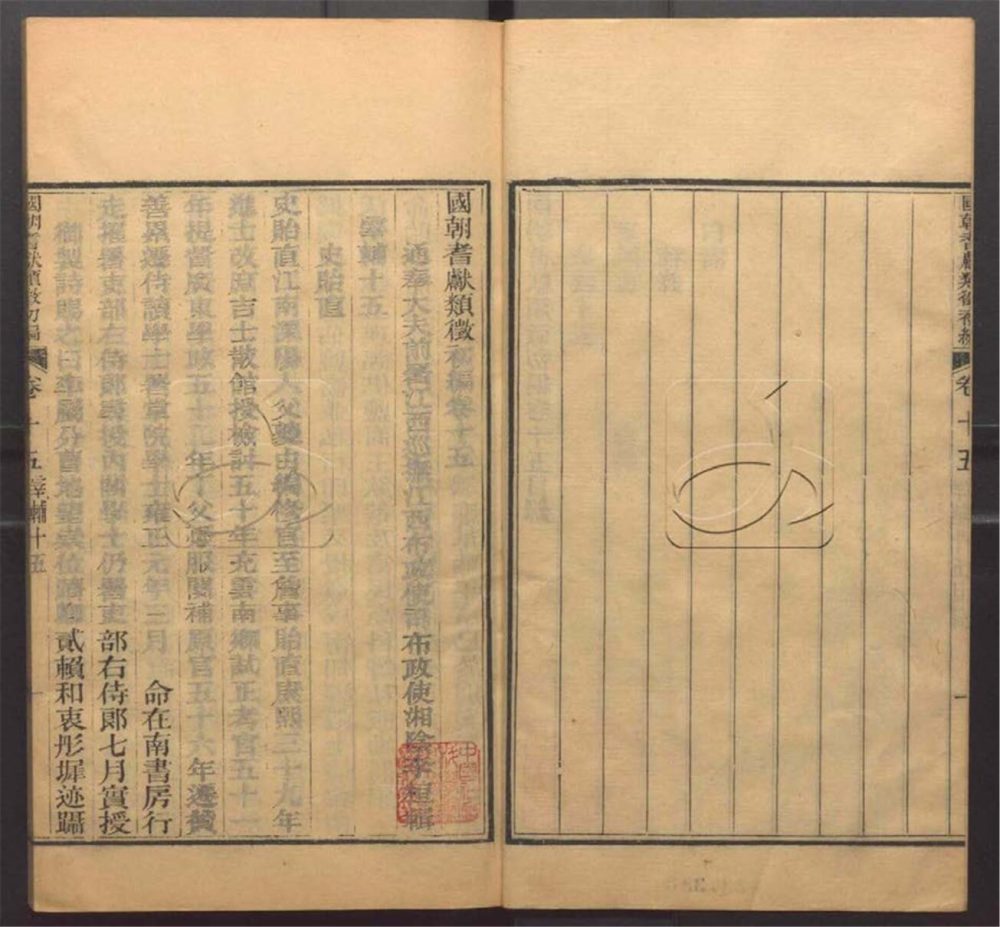 國朝耆獻類徵初編 卷十五 一
國朝耆獻類徵初編卷十五
通奉大夫前署江西巡撫江西布政使司布政使湘陰李桓輯
宰輔十五
史貽直
史貽直江南溧陽人父夔由編修官至詹事貽直康熙三十九年
進士改庶吉士散館授檢討五十年充雲南鄉試正考官五十一
年提督廣東學政五十三年丁父憂服闋補原官五十六年遷贊
善累遷侍讀學士署掌院學士雍正元年三月 命在南書房行
走擢署吏部左侍郎尋授內閣學士仍署吏部右侍郎七月實授
御製詩賜之曰屬分曹地望崇位躋卿貳賴和衷彤墀迹躡
國朝耆獻類徵初編 卷十五 宰輔十五 一